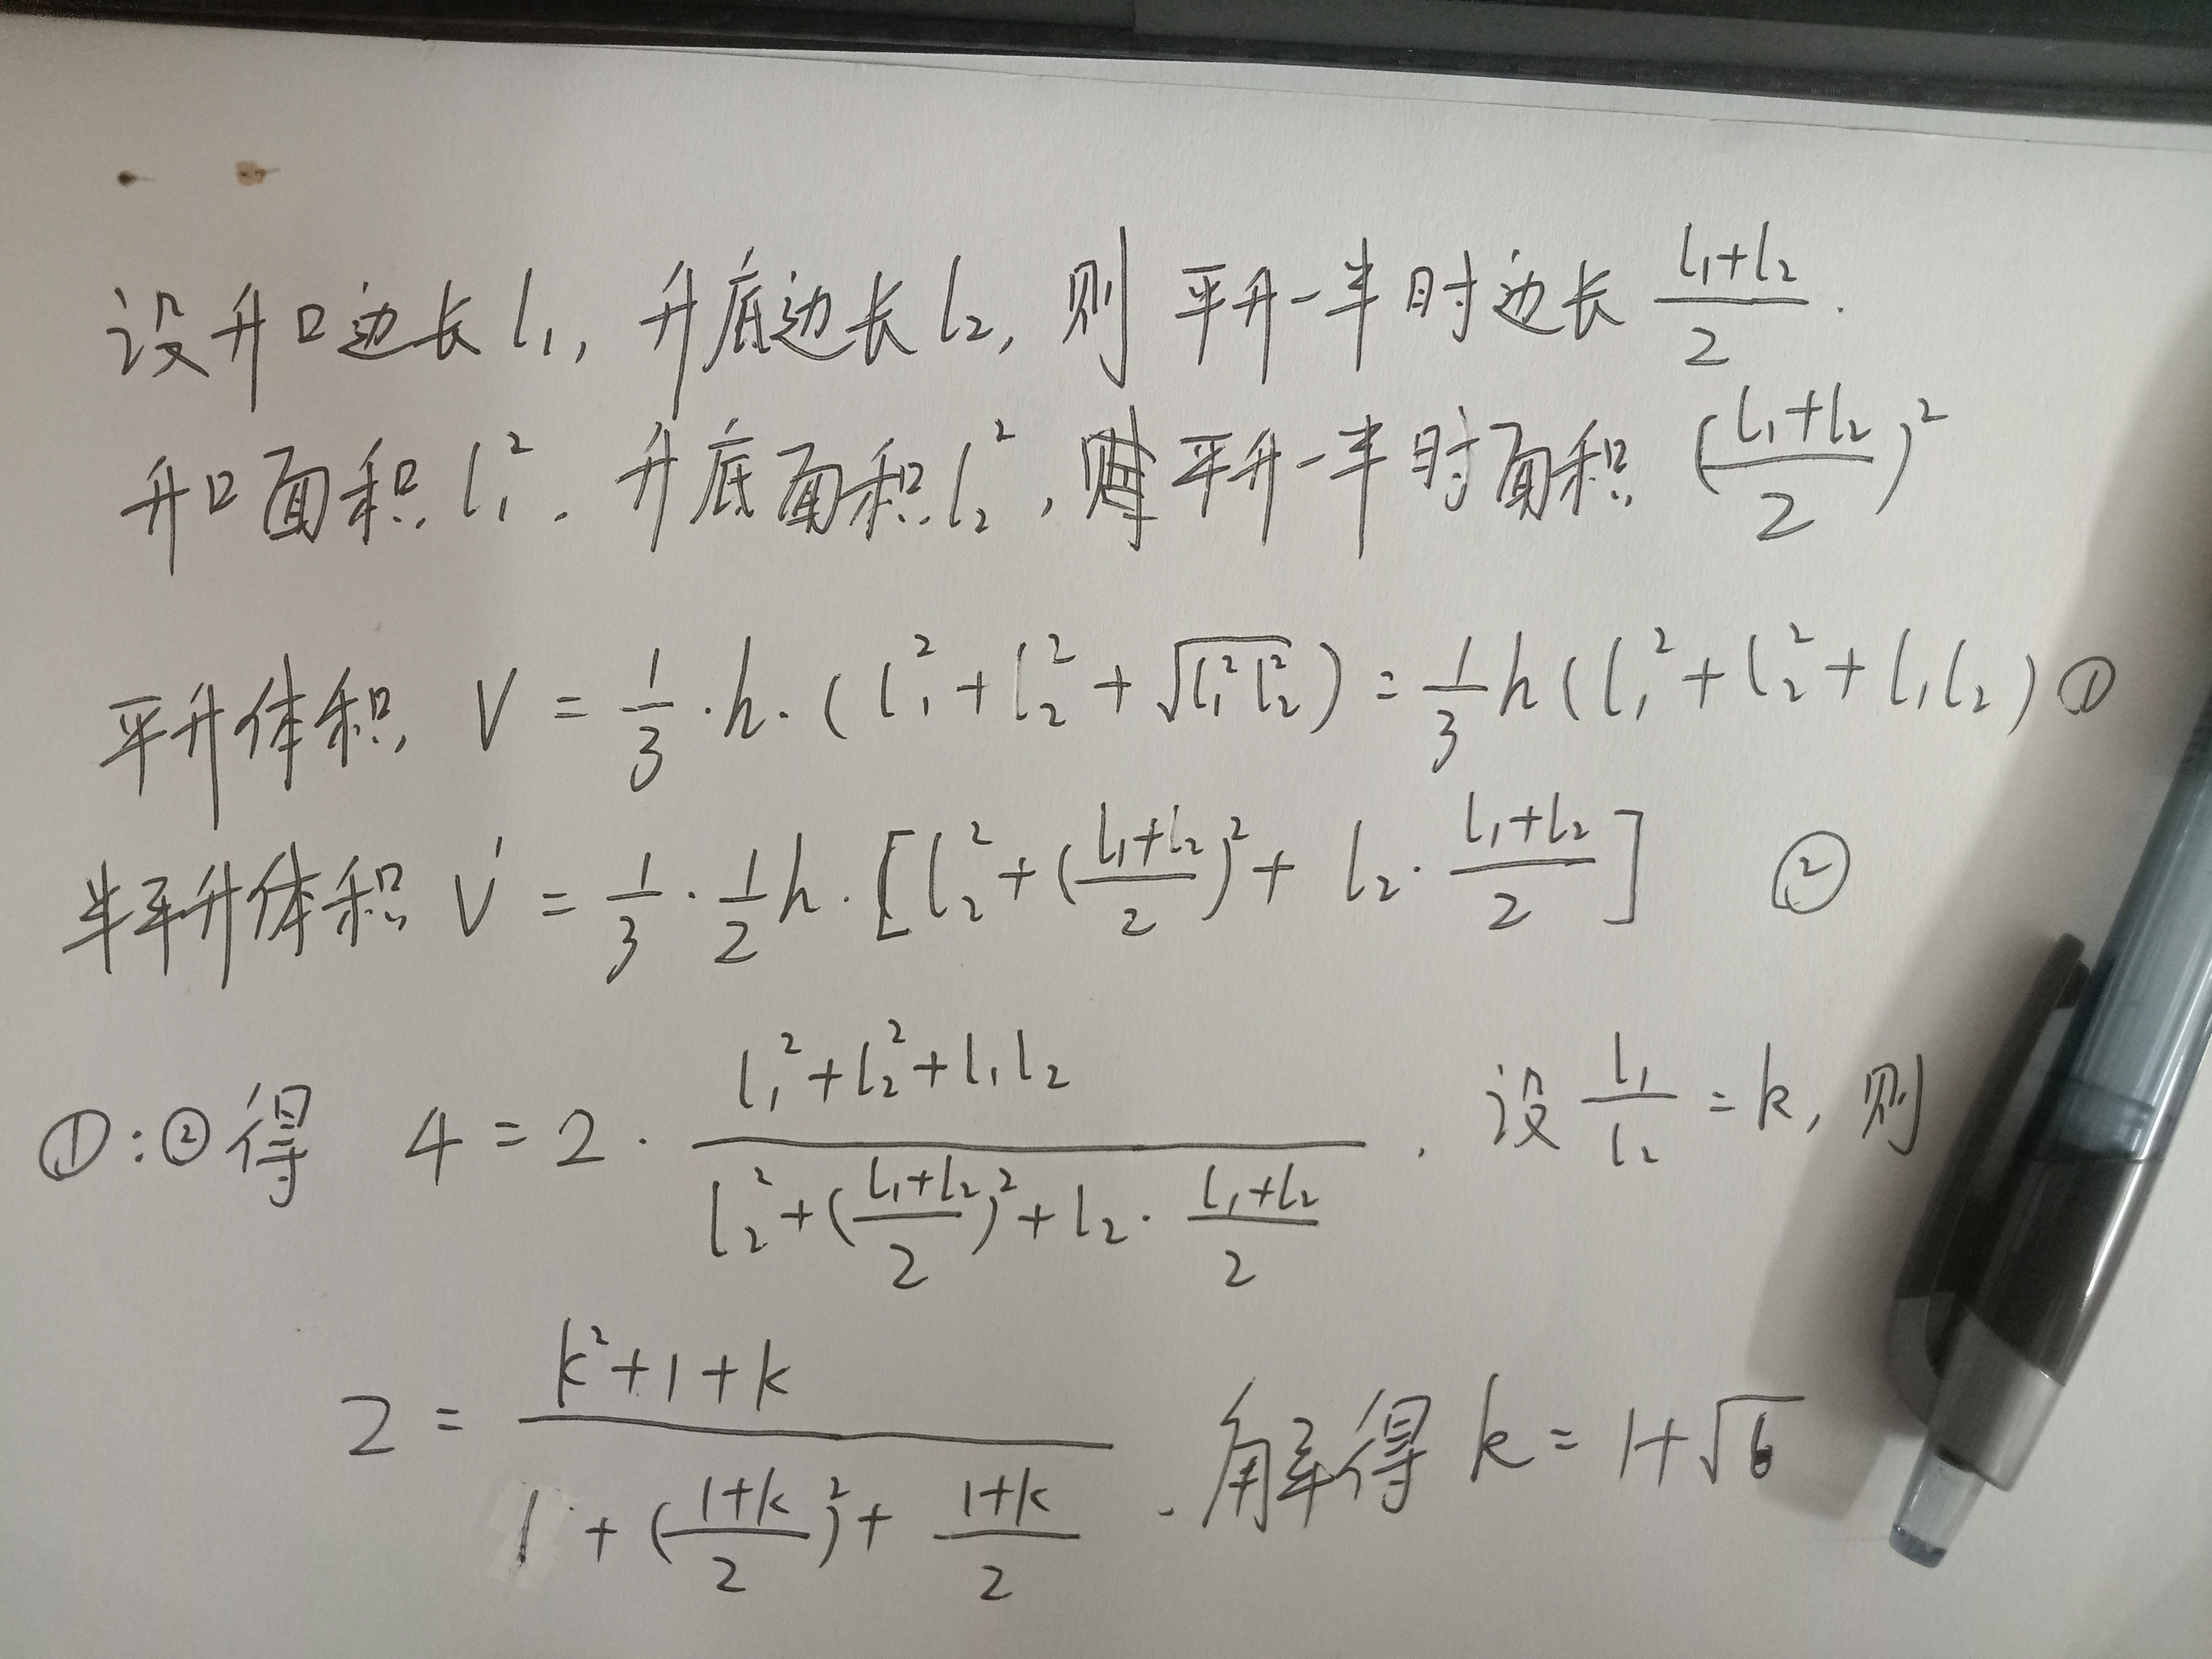 设升口边长 l₁, 升底边长 l₂, 则 平升一半时边长 (l₁+l₂)/2.
升口面积 l₁². 升底面积 l₂², 平升一半时面积 ((l₁+l₂)/2)²
平升体积 V = 1/3·h·(l₁²+l₂²+√(l₁²l₂²)) = 1/3h(l₁²+l₂²+l₁l₂) ①
半平升体积 V' = 1/3·1/2h·[l₂²+((l₁+l₂)/2)²+l₂·(l₁+l₂)/2] ②
①:②得 4 = 2·(l₁²+l₂²+l₁l₂)/(l₂²+((l₁+l₂)/2)²+l₂·(l₁+l₂)/2). 设 l₁/l₂ = k, 则
2 = (k²+1+k)/(1+((1+k)/2)²+(1+k)/2). 解得 k = 1+√6